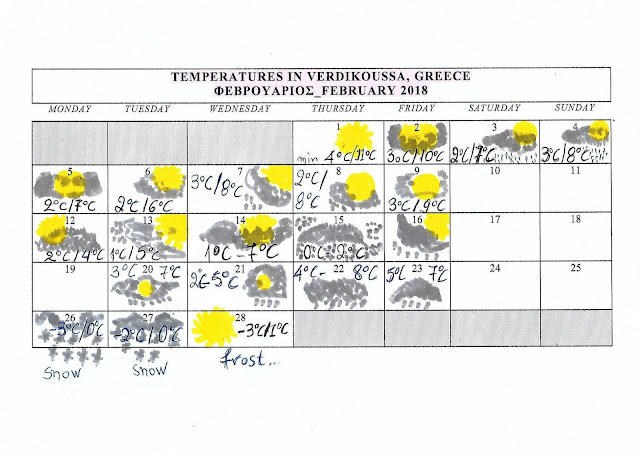 TEMPERATURES IN VERDIKOUSSA, GREECE
ΦΕΒΡΟΥΑΡΙΟΣ_FEBRUARY 2018
MONDAY TUESDAY WEDNESDAY THURSDAY FRIDAY SATURDAY SUNDAY
1 2 3 4
min 4°C/11°C 3°C/10°C 2°C/7°C 3°C/8°C
5 6 7 8 9 10 11
2°C/7°C 2°C/6°C 3°C/8°C 2°C/8°C 3°C/9°C
12 13 14 15 16 17 18
2°C/4°C 1°C/5°C 1°C-7°C 0°C-2°C
19 20 21 22 23 24 25
3°C 7°C 2°C-5°C 4°C- 8°C 5°C 7°C
26 27 28
-3°C/0°C -2°C/0°C -3°C/1°C
snow snow frost...